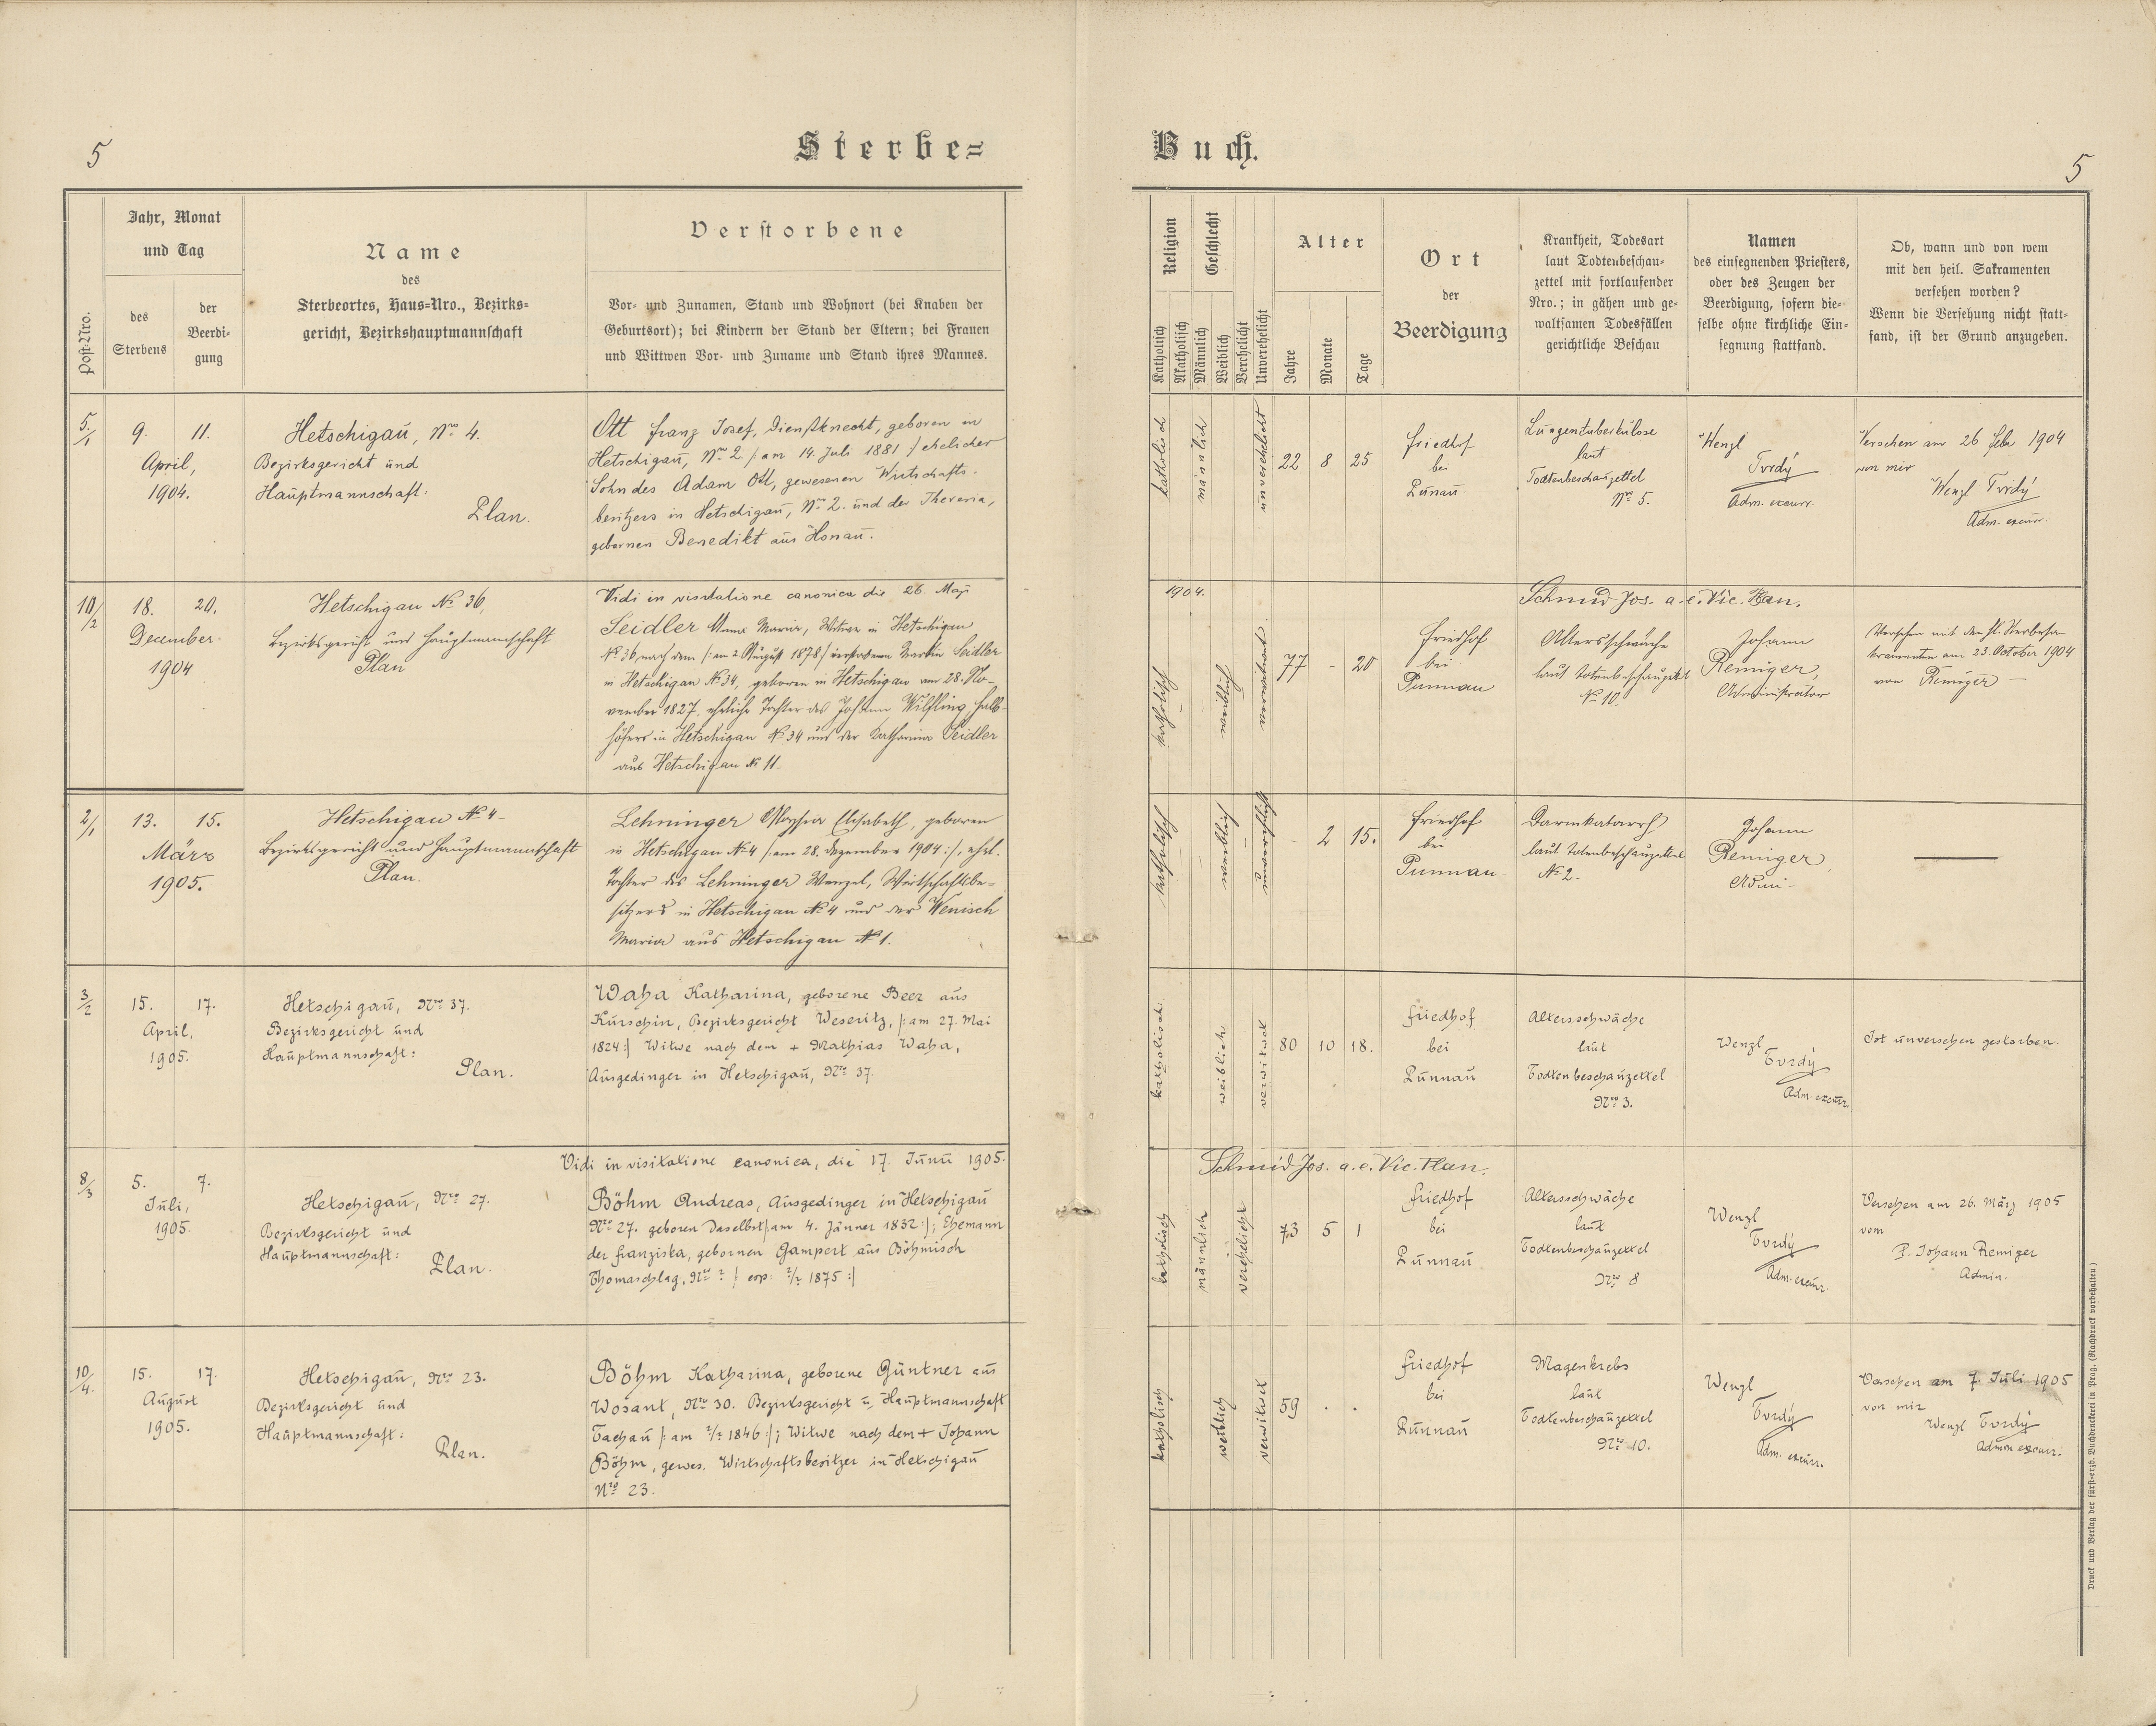 5
Sterbe=
Buch.
5
Post-Nro.
Jahr, Monat
und Tag
des
Sterbens
der
Beerdi-
gung
Name
des
Sterbeortes, Haus=Nro., Bezirks=
gericht, Bezirkshauptmannschaft
Verstorbene
Vor- und Zunamen, Stand und Wohnort (bei Knaben der
Geburtsort); bei Kindern der Stand der Eltern; bei Frauen
und Wittwen Vor- und Zuname und Stand ihres Mannes.
Religion
Katholisch
Akatholisch
Geschlecht
Männlich
Weiblich
Verehelicht
Unverehelicht
Alter
Jahre
Monate
Tage
Ort
der
Beerdigung
Krankheit, Todesart
laut Todtenbeschau-
zettel mit fortlaufender
Nro.; in gähen und ge-
waltsamen Todesfällen
gerichtliche Beschau
Namen
des einsegnenden Priesters,
oder des Zeugen der
Beerdigung, sofern die-
selbe ohne kirchliche Ein-
segnung stattfand.
Ob, wann und von wem
mit den heil. Sakramenten
versehen worden?
Wenn die Versehung nicht statt-
fand, ist der Grund anzugeben.
5/1
9. 11.
April,
1904.
Hetschigaū, Nro 4.
Bezirksgericht und
Haūptmannschaft:
Plan.
Ott Franz Josef, Dienstknecht, geboren in
Hetschigaū, Nro 2. /: am 14. Juli 1881 :/ ehelicher
Sohn des Adam Ott, gewesenen Wirtschafts-
besitzers in Hetschigaū, Nro 2. und der Theresia,
gebornen Benedikt aūs Honaū.
katholisch
männlich
unverehelicht
22 8 25
Friedhof
bei
Pūnaū.
Lungentuberkūlose
laut
Todtenbeschaūzettel
Nro 5.
Wenzl
Tvrdý
Adm. excurr.
Versehen am 26 Febr 1904
von mir
Wenzl Tvrdý
Adm. excurr.
Vidi in visitatione canonica die 26. Maji
1904.
Schmid Jos. a. e. Vic. Plan.
10/2
18. 20.
December
1904
Hetschigau No 36,
Bezirksgericht und Hauptmannschaft
Plan
Seidler Anna Maria, Witwe in Hetschigau
No 36, nach dem /: am 2 August 1878 :/ verstorbenen Martin Seidler
in Hetschigau No 34, geboren in Hetschigau am 28. No-
vember 1827, eheliche Tochter des Johann Wilfling, Halb-
höfers in Hetschigau No 34 und der Katharina Seidler
aus Hetschigau No 11.
katholisch
weiblich
verwitwet
77 - 20
Friedhof
bei
Punnau
Altersschwäche
laut Totenbeschauzettel
No 10
Johann
Remiger,
Administrator
Versehen mit den hl. Sterbesa-
kramenten am 23. October 1904
von Remiger —
2/1
13. 15.
März
1905.
Hetschigau No 4 -
Bezirksgericht und Hauptmannschaft
Plan.
Lehninger Aloysia Elisabeth, geboren
in Hetschigau No 4 /: am 28. Dezember 1904 :/, ehel.
Tochter des Lehninger Wenzel, Wirtschaftsbe-
sitzers in Hetschigau No 4 und der Wenisch
Maria aus Hetschigau No 1.
katholisch
weiblich
unverehelicht
- 2 15.
Friedhof
bei
Punnau -
Darmkatarrh
laut Totenbeschauzettel
No 2 -
Johann
Remiger
Admi -
3/2
15. 17.
April,
1905.
Hetschigaū, Nro 37.
Bezirksgericht und
Haūptmannschaft:
Plan.
Waha Katharina, geborene Beer aus
Kūrschin, Bezirksgericht Weseritz, /: am 27. Mai
1824 :/ Witwe nach dem + Mathias Waha,
Aūsgedinger in Hetschigaū, Nro 37.
katholisch
weiblich
verwitwet
80 10 18.
Friedhof
bei
Pūnnaū
Altersschwäche
laut
Todtenbeschaūzettel
Nro 3.
Wenzl
Tvrdý
Adm. excurr.
Ist ūnversehen gestorben.
Vidi in visitatione canonica, die 17. Junii 1905.
Schmid Jos. a. e. Vic. Plan.
8/3
5. 7.
Jūli,
1905.
Hetschigaū, Nro 27.
Bezirksgericht und
Haūptmannschaft:
Plan.
Böhm Andreas, Aūsgedinger in Hetschigaū
Nro 27. geboren daselbst /: am 4. Jänner 1832 :/; Ehemann
der Franziska, gebornen Gampert aūs Böhmisch
Thomaschlag, Nro ? /: cop: ?/? 1875 :/
katholisch
männlich
verehelicht
73 5 1
Friedhof
bei
Pūnnaū
Altersschwäche
laut
Todtenbeschaūzettel
Nro 8
Wenzl
Tvrdý
Adm. excurr.
Versehen am 26. März 1905
vom
P. Johann Remiger
Admin.
10/4.
15. 17.
Aūgūst
1905.
Hetschigaū, Nro 23.
Bezirksgericht ūnd
Haūptmannschaft:
Plan.
Böhm Katharina, geborene Gūntner aūs
Wosant, Nro 30. Bezirksgericht u. Haūptmannschaft
Tachaū /: am ?/? 1846 :/; Witwe nach dem + Johann
Böhm, gewes. Wirtschaftsbesitzer in Hetschigaū
Nro 23.
katholisch
weiblich
verwitwet
59 . .
Friedhof
bei
Pūnnaū
Magenkrebs
laut
Todtenbeschaūzettel
Nro 10.
Wenzl
Tvrdý
Adm. excurr.
Versehen am 7. Jūli 1905
von mir
Wenzl Tvrdý
Admin excurr.
Druck und Verlag der fürst-erzb. Buchdruckerei in Prag. (Nachdruck vorbehalten.)